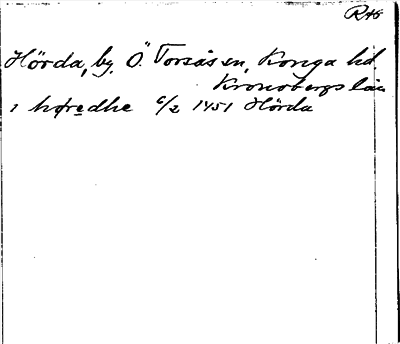 RAä
Hörda, by. Ö. Torsås sn, Konga hd.
Kronobergs län
i høredhe c/2 1451 Hörda